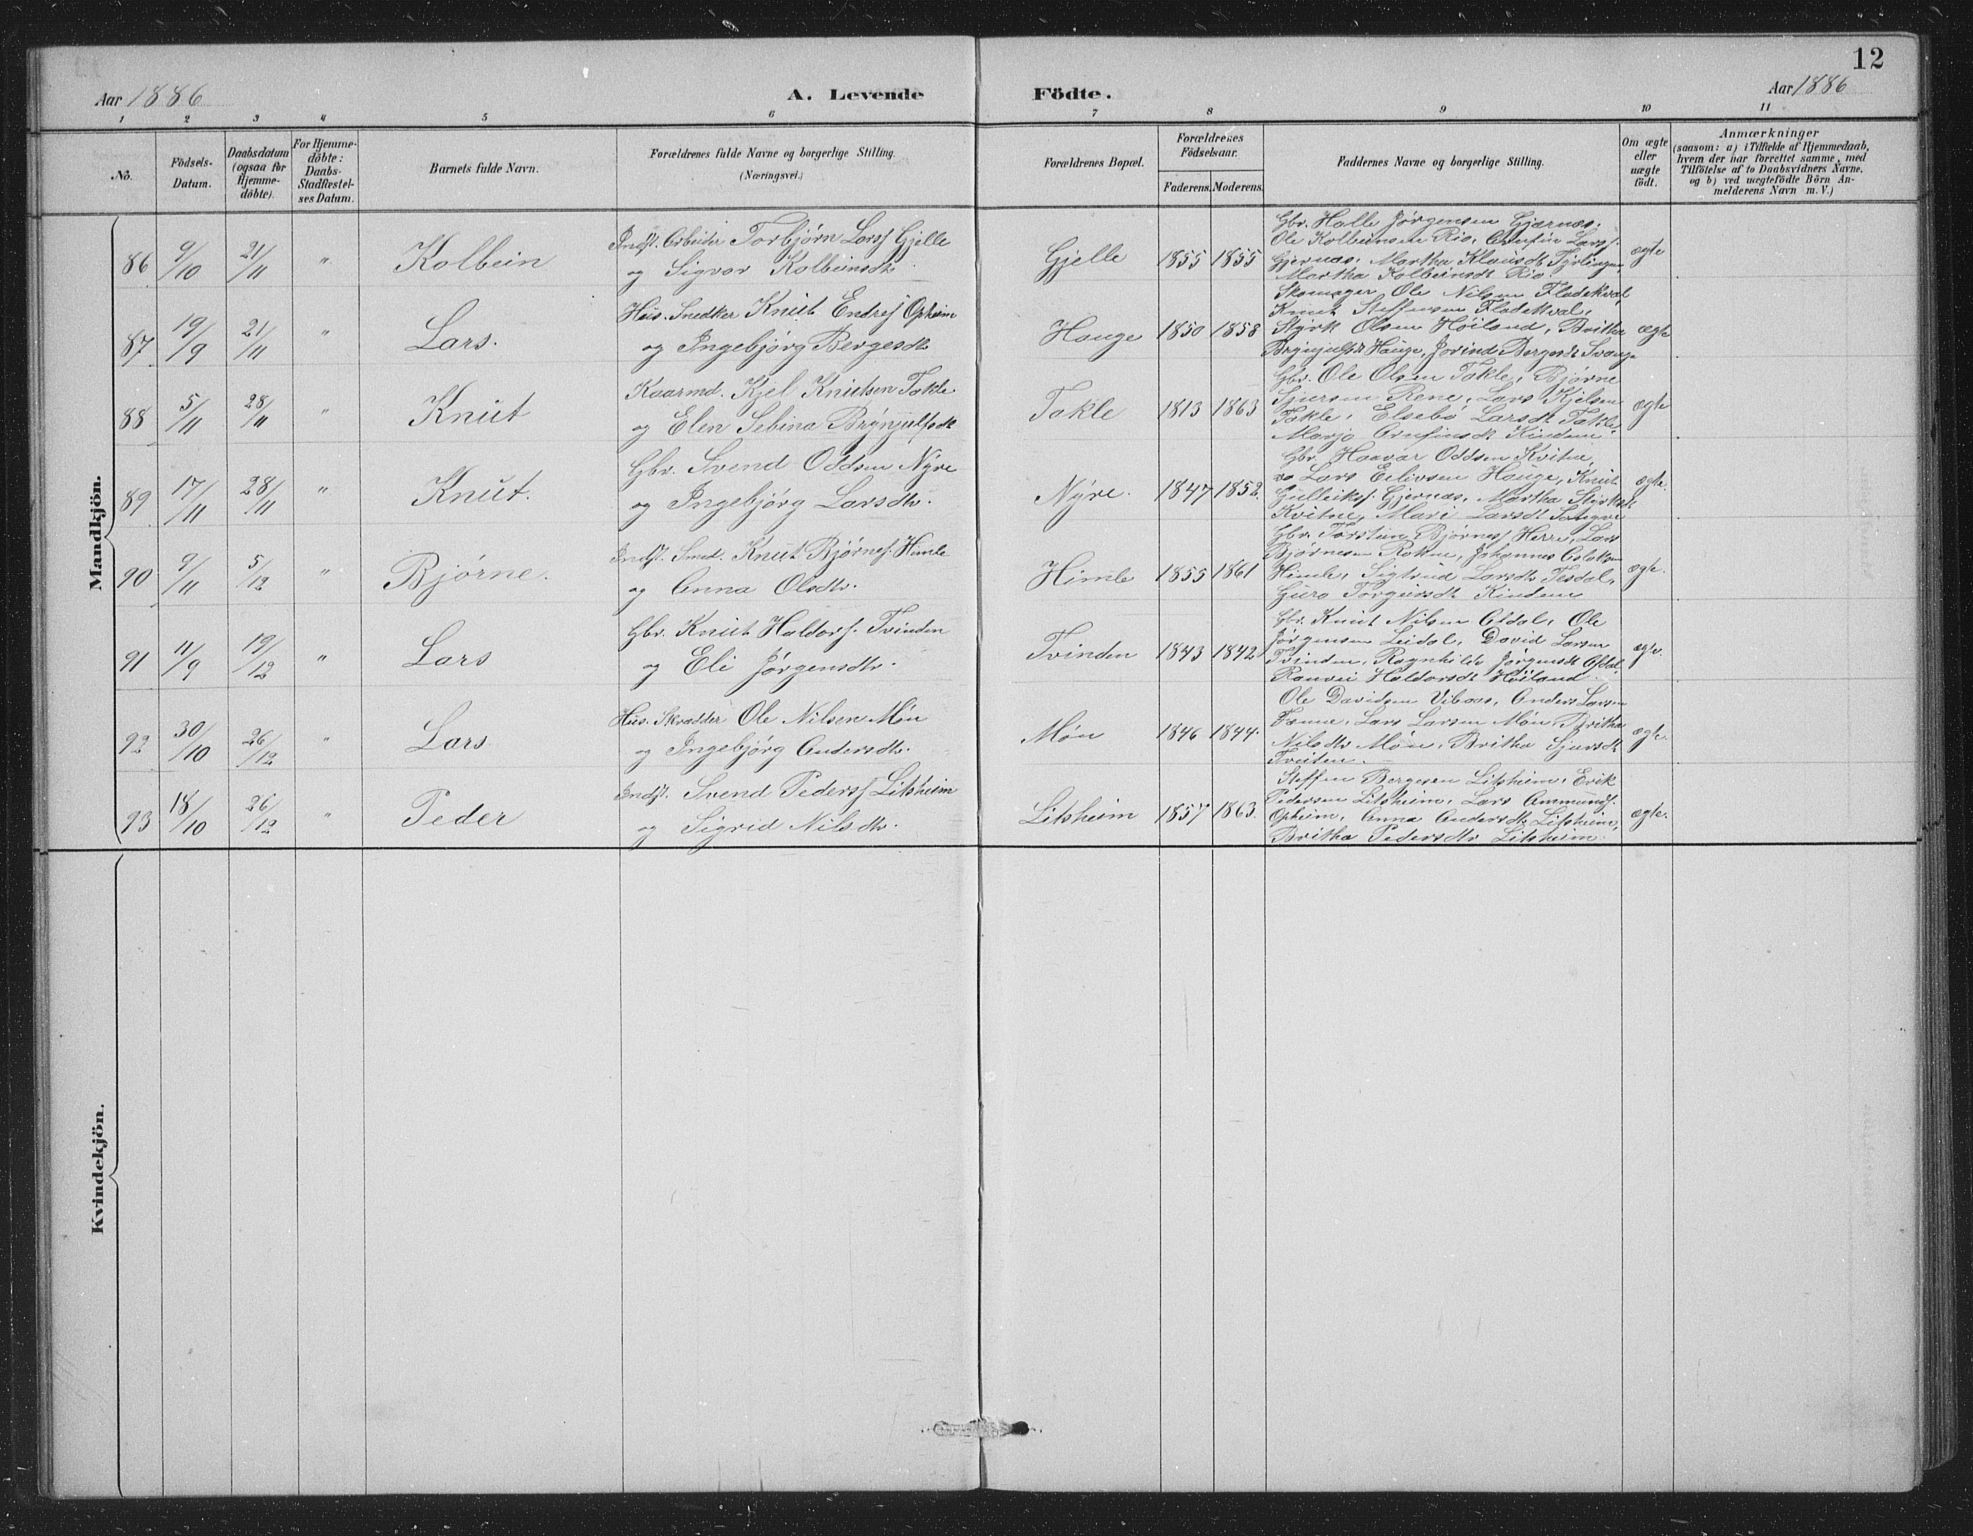 12
Aar 1886
A. Levende Födte.
Aar 1886
1 2 3 4 5 6 7 8 9 10 11
No.
Födsels-Datum.
Daabsdatum (ogsaa for Hjemmedöbte).
For Hjemmedöbte: Daabs-Stadfestelses Datum.
Barnets fulde Navn.
Forældrenes fulde Navne og borgerlige Stilling.
(Næringsvei.)
Forældrenes Bopæl.
Forældrenes Födselsaar.
Faderens. Moderens.
Faddernes Navne og borgerlige Stilling.
Om ægte eller uægte födt.
Anmærkninger
(saasom: a) i Tilfælde af Hjemmedaab,
hvem der har forrettet samme, med
Tilföielse af to Daabsvidners Navne,
og b) ved uægtefödte Börn Anmelderens Navn m. V.)
Mandkjön.
86 9/10 21/11 " Kolbein
Indst. Arbeider Torbjörn Larss Gjelle
og Sigvor Kolbeinsdtr.
Gjelle 1855 1855
Gbr. Halle Jörgensen Gjærnæs.
Ole Kolbeinsen Rio, Larss.
Gjernæs, Martha Klausdt
Martha Kolbeinsdt Rio.
ægte
87 19/9 21/11 " Lars.
Hus. Snedker Knut Endres Opheim
og Ingebjörg Bergesdtr
Hauge 1850 1858
Skomager Ole Nilsen Flatekval,
Knut Steffensen Flatekval,
Styrk Olsen Höiland, Britha
Brynjulfsdt Hauge, Bergesdt
ægte
88 5/11 28/11 " Knut
Kaarmd. Kjel Knutsen Takle
og Elen Sebina Brynjulfsdt
Takle 1813 1863
Gbr. Ole Olsen Takle, Björne
Sjursen Rene, Lars Kjelsen
Takle, Elsebö Larsdt Takle,
Marjo Arnfinsdt Kindem
ægte
89 17/11 28/11 " Knut.
Gbr. Svend Oddsen Nyre
og Ingebjörg Larsdtr.
Nyre. 1847 1852.
Gbr. Haavar Oddsen Kvitne,
Lars Eilivsen Hauge, Knut
Gulleiks. Gjernæs, Martha Styrksdt
Kvitne, Mari Larsdt
ægte.
90 9/11 5/12 " Björne.
Indst. Smed. Knut Björnes. Himle
og Anna Olsdtr.
Himle 1855 1861
Gbr. Torstein Björnes Herre, Lars
Björnesen Rokne, Johannes Aslaksen
Himle, Sigtrud Larsdt Tesdal,
Guro Torgeirsdt Kindem
ægte.
91 11/9 19/12 " Lars
Gbr. Knut Haldors. Tvinden
og Eli Jörgensdtr.
Tvinden 1843 1842
Gbr. Knut Nilsen Afdal, Ole
Jörgensen Leidal, David Larsen
Tvinden, Ragnhilde Jörgensdt Afdal,
Ranvei Haldorsdt Höiland.
ægte.
92 30/10 26/12 " Lars
Hus. Skrædder Ole Nilsen Mön
og Ingebjörg Andersdtr.
Mön 1846 1844.
Ole Davidsen Anders Larsen
Lars Larsen Mön, Britha
Nilsdtr Mön, Britha Sjursdt
Tveiten.
ægte.
93 18/10 26/12 " Peder
Indst. Svend Peders Litsheim
og Sigrid Nilsdtr.
Litsheim 1857 1863.
Steffen Bergesen Litsheim, Erik
Pedersen Litsheim, Lars Ammunds.
Opheim, Anna Andersdt Litsheim,
Britha Pedersdtr Litsheim.
ægte.
Kvindekjön.